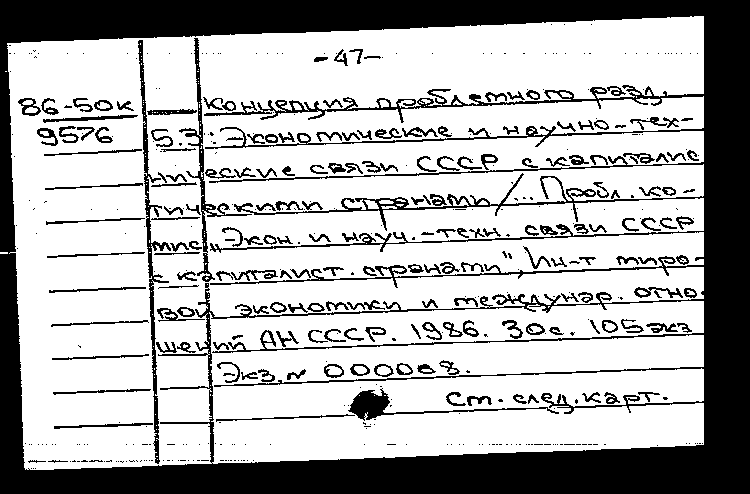 -47-
86-50к Концепция проблемного разд.
9576 5.3: Экономические и научно-тех-
нические связи СССР с капиталис
тическими странами/... Пробл. ко-
мис. „Экон. и науч.-техн. связи СССР
с капиталист. странами", Ин-т миро-
вой экономики и междунар. отно-
шений АН СССР. 1986. 30с. 105экз
Экз.№ 000068.
См. след. карт.